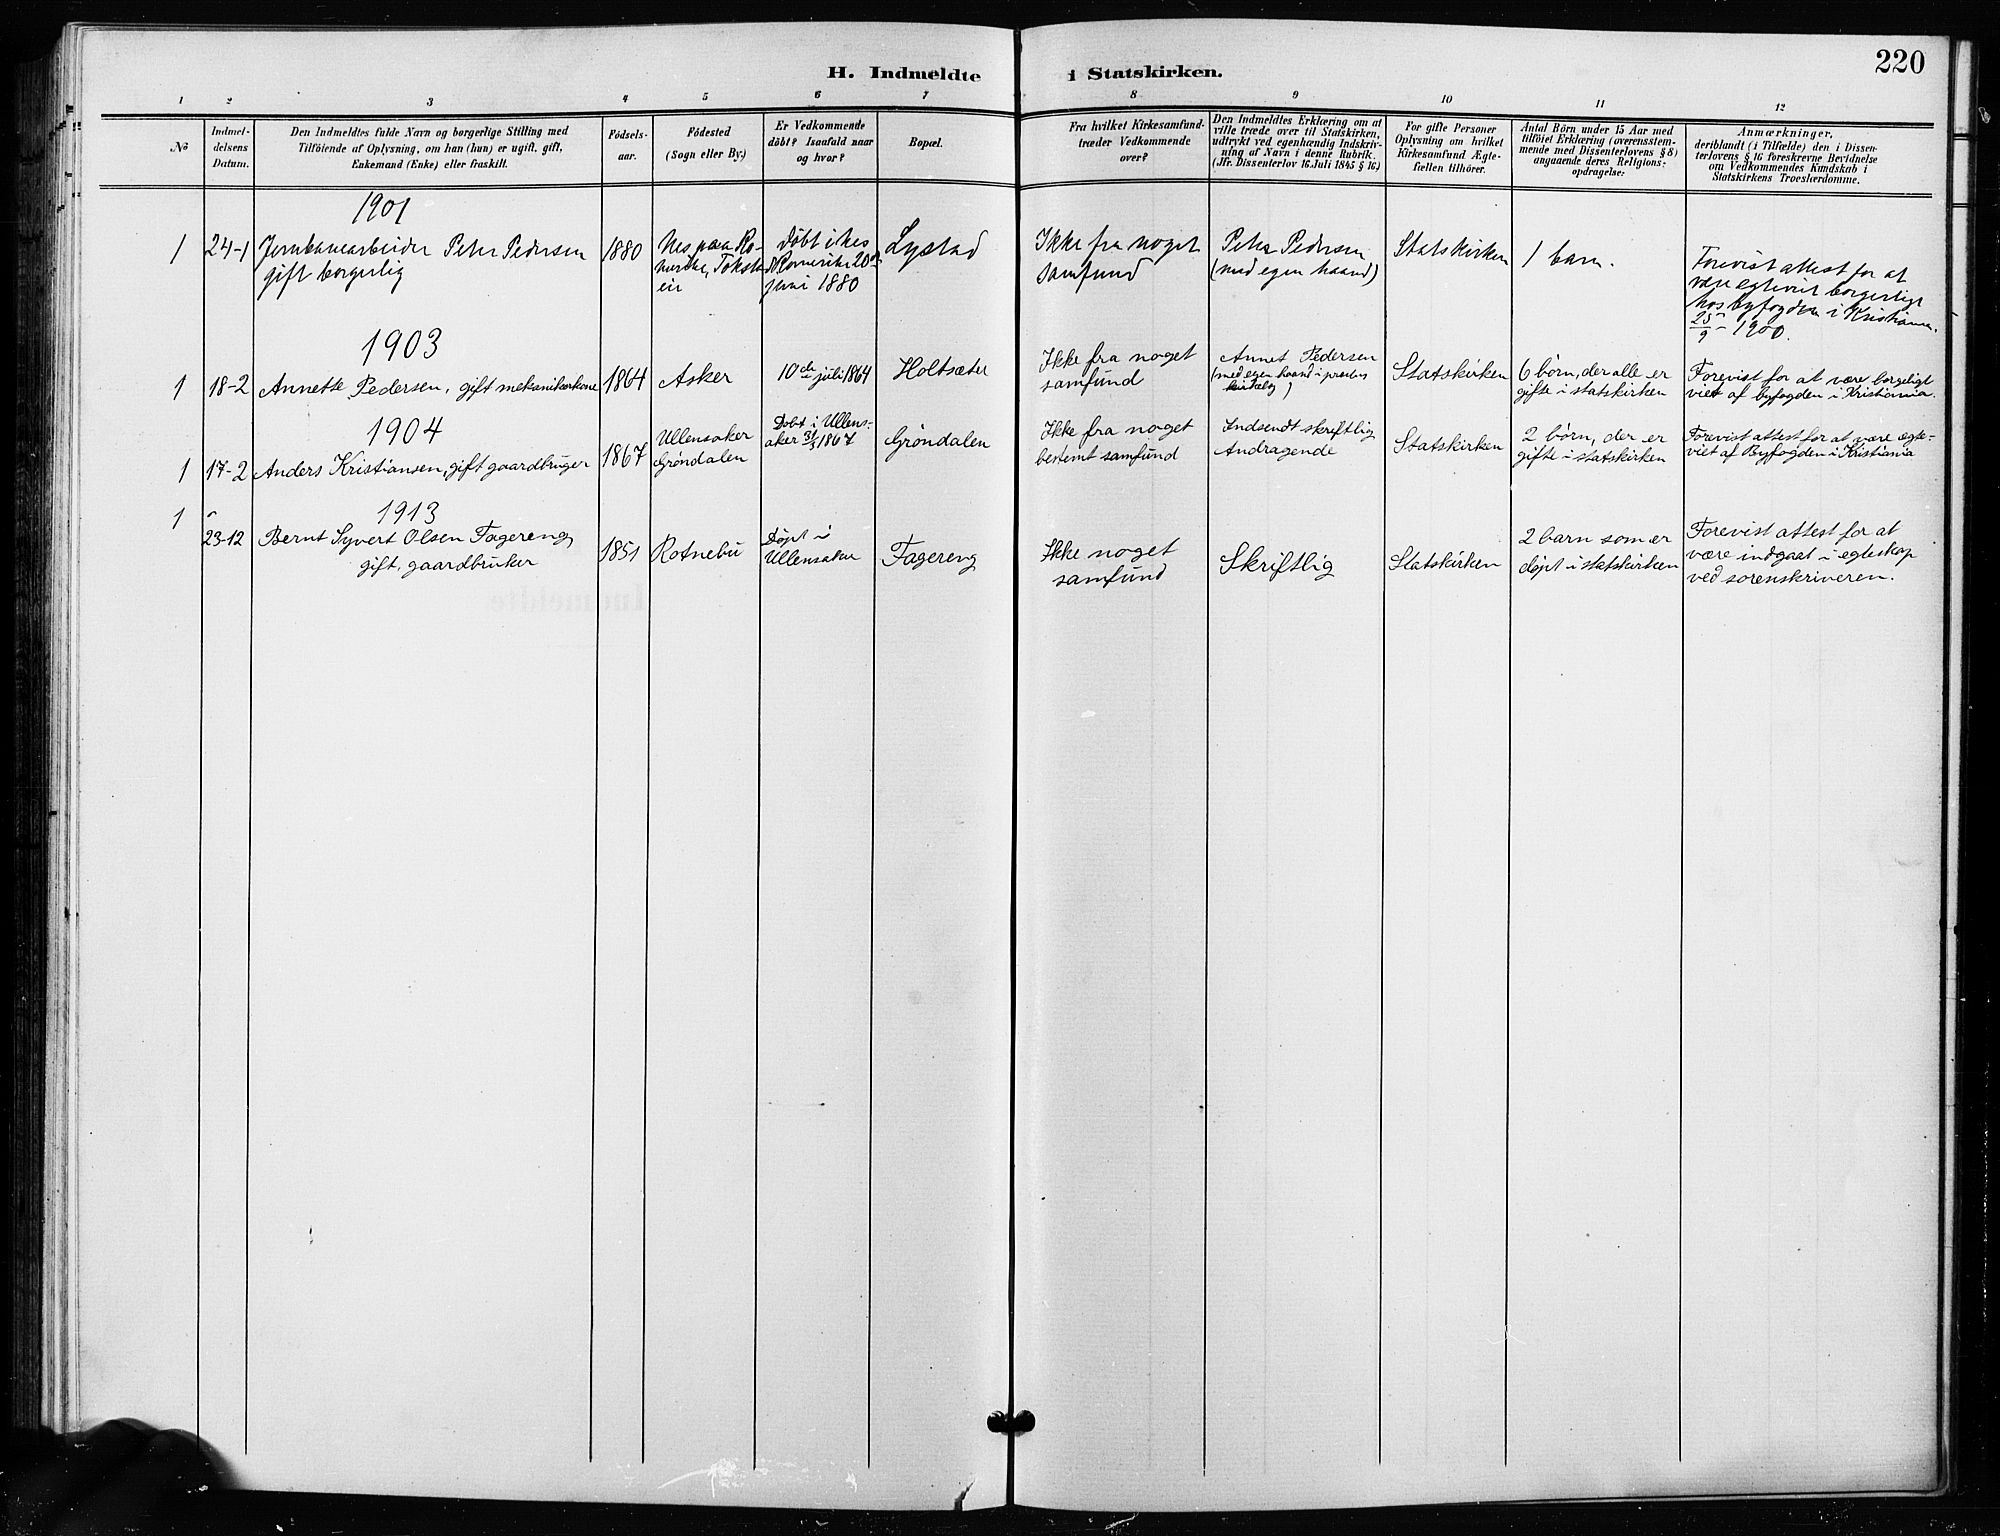 220
H. Indmeldte i Statskirken.
1 2 3 4 5 6 7 8 9 10 11 12
No
Indmel-
delsens
Datum.
Den Indmeldtes fulde Navn og borgerlige Stilling med
Tilföiende af Oplysning, om han (hun) er ugift, gift,
Enkemand (Enke) eller fraskilt.
Födsels-
aar.
Födested
(Sogn eller By.)
Er Vedkommende
döbt? Isaafald naar
og hvor?
Bopæl.
Fra hvilket Kirkesamfund
træder Vedkommende
over?
Den Indmeldtes Erklæring om at
ville træde over til Statskirken,
udtrykt ved egenhændig Indskriv-
ning af Navn i denne Rubrik.
(Jfr. Dissenterlov 16 Juli 1845 § 16.)
For gifte Personer
Oplysning om hvilket
Kirkesamfund Ægte-
fællen tilhörer.
Antal Börn under 15 Aar med
tilföiet Erklæring (overensstem-
mende med Dissenterlovens § 8)
angaaende deres Religions-
opdragelse:
Anmærkninger,
deriblandt (i Tilfælde) den i Dissen-
terlovens § 16 foreskrevne Bevidnelse
om Vedkommendes Kundskab i
Statskirkens Troeslærdomme.
1901
1
24-1
Jernbanearbeider Peter Pedersen
gift borgerlig
1880
Nes paa Ro-
merike,
Döbt i Nes
Romerike 20de
juni 1880
Lystad
Ikke fra noget
samfund
Peter Pedersen
(med egen haand)
Statskirken
1 barn.
Forevist attest for at
være egteviet borgerligt
hos byfogden i Kristiania
25/9 - 1900.
1903
1
18-2
Annette Pedersen, gift mekanikerkone
1864
Asker
10de juli 1864
Holtsæter
Ikke fra noget
samfund
Annet Pedersen
(med egen haand i prestens
)
Statskirken
6 börn, der alle er
gifte i statskirken
Forevist for at være borgeligt
viet af byfogden i Kristiania.
1904
1
17-2
Anders Kristiansen, gift gaardbruger
1867
Ullensaker
Gröndalen
Döbt i Ullens-
aker 31/3 1867
Gröndalen
Ikke fra noget
bestemt samfund
Indsendt skriftlig
Andragende
Statskirken
2 börn, der er
gifte i statskirken
Forevist attest for at være egte-
viet af Byfogden i Kristiania
1913
1
23-12
Bernt Syvert Olsen Fagereng,
gift, gaardbruker
1851
Rotnebu
Döpt i
Ullensaker
Fagereng
Ikke noget
samfund
Skriftlig
Statskirken
2 barn som er
döpt i statskirken
Forevist attest for at
være indgaat i egteskap
ved sorenskriveren.